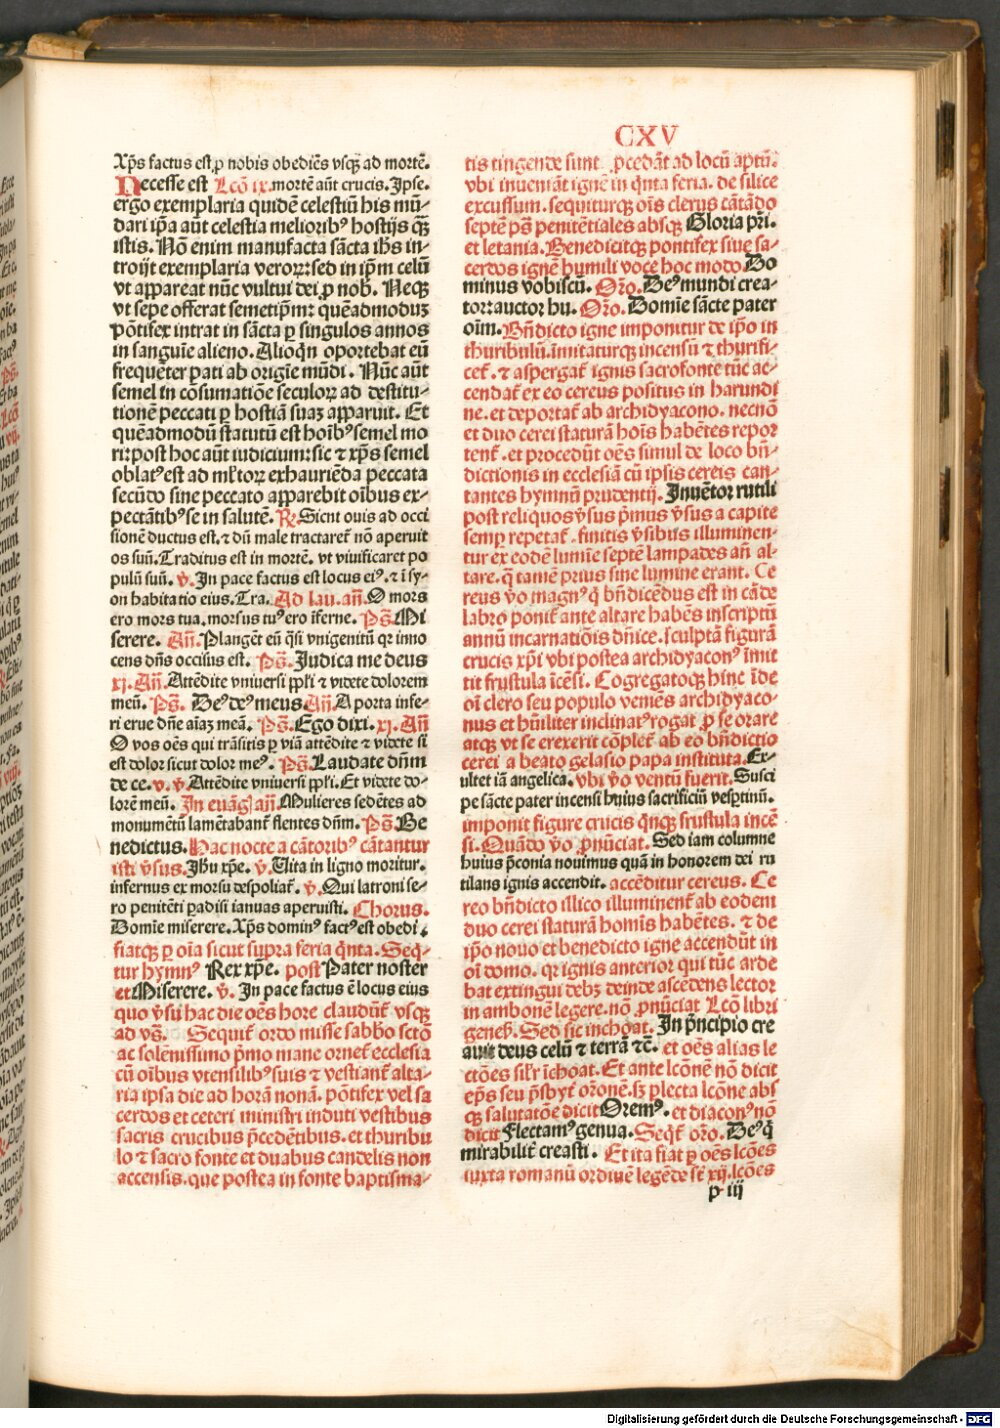 CXV
Xp̄s factus est ꝓ nobis obediēs vsqꝫ ad mortē.
Necesse est Lcō ix. mortē aūt crucis. Ipse.
ergo exemplaria quidē celestiū his mū-
dari ip̄a aūt celestia melioribꝰ hostijs qꝫ
istis. Nō enim manufacta sācta ih̄s in-
troijt exemplaria verorꝝ: sed in ip̄m celū
vt appareat nūc vultui dei ꝓ nob̄. Neqꝫ
vt sepe offerat semetip̄m: quēadmoduꝫ
pōtifex intrat in sācta ꝑ singulos annos
in sanguīe alieno. Alioq̄n oportebat eū
frequēter pati ab origīe mūdi. Nūc aūt
semel in cōsumatiōe seculorꝝ ad destitu-
tionē peccati ꝑ hostiā suaꝫ apparuit. Et
quēadmodū statutū est hoībꝰ semel mo
ri: post hoc aūt iudicium: sic ⁊ xp̄s semel
oblatꝰ est ad ml̄torꝝ exhauriēda peccata
secūdo sine peccato apparebit oībus ex-
pectātibꝰ se in salutē. ℟. Sicut ouis ad occi
sionē ductus est. ⁊ dū male tractaret̄ nō aperuit
os suū. Traditus est in mortē. vt viuificaret po
pulū suū. ℣. In pace factus est locus eiꝰ. ⁊ ī sy-
on habitatio eius. Tra. Ad lau. añ. O mors
ero mors tua. morsus tuꝰ ero īferne. Ps̄. Mi
serere. Añ. Plangēt eū q̄si vnigenitū qꝛ inno
cens dn̄s occisus est. Ps̄. Judica me deus
xj. Añ. Attēdite vniuersi ppl̄i ⁊ videte dolorem
meū. Ps̄. Deꝰ deꝰ meus Añ. A porta infe-
ri erue dn̄e aīaꝫ meā. Ps̄. Ego dixi. xj. Añ
O vos oēs qui trāsitis ꝑ viā attēdite ⁊ videte si
est dolor sicut dolor meꝰ. Ps̄. Laudate dn̄m
de ce. v. ℣. Attēdite vniuersi ppl̄i. Et videte do-
lorē meū. In euāḡ añ. Mulieres sedētes ad
monumētū lamētabant̄ flentes dn̄m. Ps̄. Be
nedictus. Hac nocte a cātoribꝰ cātantur
isti v̄sus. Jh̄u xp̄e. ℣. Vita in ligno moritur.
infernus ex morsu despoliat̄. ℣. Qui latroni se-
ro penitēti ꝑadisi ianuas aperuisti. Chorus.
Domīe miserere. Xp̄s dominꝰ factꝰ est obedi.
fiatqꝫ ꝑ oīa sicut supra feria q̄nta. Seq̄-
tur hymnꝰ Rex xp̄e. post Pater noster
et Miserere. ℣. In pace factus ē locus eius
quo v̄su hac die oēs hore claudūt̄ vsqꝫ
ad vs̄. Sequit̄ ordo misse sabb̄o sctō
ac solēnissimo p̄mo mane ornet̄ ecclesia
cū oībus vtensilibꝰ suis ⁊ vestiant̄ alta-
ria ipsa die ad horā nonā. pōtifex vel sa
cerdos et ceteri ministri induti vestibus
sacris crucibus p̄cedētibus. et thuribu
lo ⁊ sacro fonte et duabus candelis non
accensis. que postea in fonte baptisma-
tis tingende sunt ꝓcedāt ad locū aptū.
vbi inueniāt ignē in q̄nta feria. de silice
excussum. sequiturqꝫ oīs clerus cātādo
septē ps̄ penitētiales absqꝫ Gloria p̄ri.
et letania. Benedicitqꝫ pontifex siue sa-
cerdos ignē humili voce hoc modo. Do
minus vobiscū. Or̄o. Deꝰ mundi crea-
torr auctor hu. Or̄o. Domīe sācte pater
oīm. Bn̄dicto igne imponitur de ip̄o in
thuribulū. imitaturqꝫ incensū ⁊ thurifi-
cet̄. ⁊ aspergat̄ ignis sacrofonte tūc ac-
cendat̄ ex eo cereus positus in harundi
ne. et deportat̄ ab archidyacono. necnō
et duo cerei staturā hoīs habētes repor
tent̄. et procedūt oēs simul de loco bn̄-
dictionis in ecclesiā cū ipsis cereis can-
tantes hymnū prudentij. Inuētor rutili
post reliquos v̄sus p̄mus v̄sus a capite
semꝑ repetat̄. finitis v̄sibus illuminen-
tur ex eodē lumīe septē lampades añ al-
tare. q̄ tamē prius sine lumine erant. Ce
reus v̄o magnꝰ q̄ bn̄dicēdus est in cāde
labro ponit̄ ante altare habēs inscriptū
annū incarnatiōis dn̄ice. sculptā figurā
crucis xp̄i vbi postea archidyaconꝰ īmit
tit frustula īcēsi. Cōgregatoqꝫ hinc īde
oī clero seu populo veniēs archidyaco-
nus et hūiliter inclinatꝰ rogat ꝓ se orare
atqꝫ vt se erexerit cōplet̄ ab eo bn̄dictio
cerei a beato gelasio papa instituta. Ex-
ultet iā angelica. vbi v̄o ventū fuerit. Susci
pe sācte pater incensi huius sacrificiū vesꝑtinū.
imponit figure crucis q̄nqꝫ frustula incē
si. Quādo v̄o ꝓnūciat. Sed iam columne
huius p̄conia nouimus quā in honorem dei ru
tilans ignis accendit. accēditur cereus. Ce
reo bn̄dicto illico illuminent̄ ab eodem
duo cerei staturā homīs habētes. ⁊ de
ip̄o nouo et benedicto igne accendūt in
oī domo. qꝛ ignis anterior qui tūc arde
bat extingui debꝫ deinde ascēdens lector
in ambonē legere. nō ꝓnūciat Lcō libri
genes̄. Sed sic inchoat. In p̄ncipio cre
auit deus celū ⁊ terrā ⁊c̄. et oēs alias le
ctōes sil̄r īchoat. Et ante lcōnē nō dicit
ep̄s seu p̄sbyt̄ or̄onē. sꝫ plecta lcōne abs
qꝫ salutatōe dicit Oremꝰ. et diaconꝰ nō
dicit Flectamꝰ genua. Seqt̄ or̄o. Deꝰ q̄
mirabilit̄ creasti. Et ita fiat ꝑ oēs lcōes
iuxta romanū ordinē legēde st̄ xij. lcōes
p iij
Digitalisierung gefördert durch die Deutsche Forschungsgemeinschaft - DFG